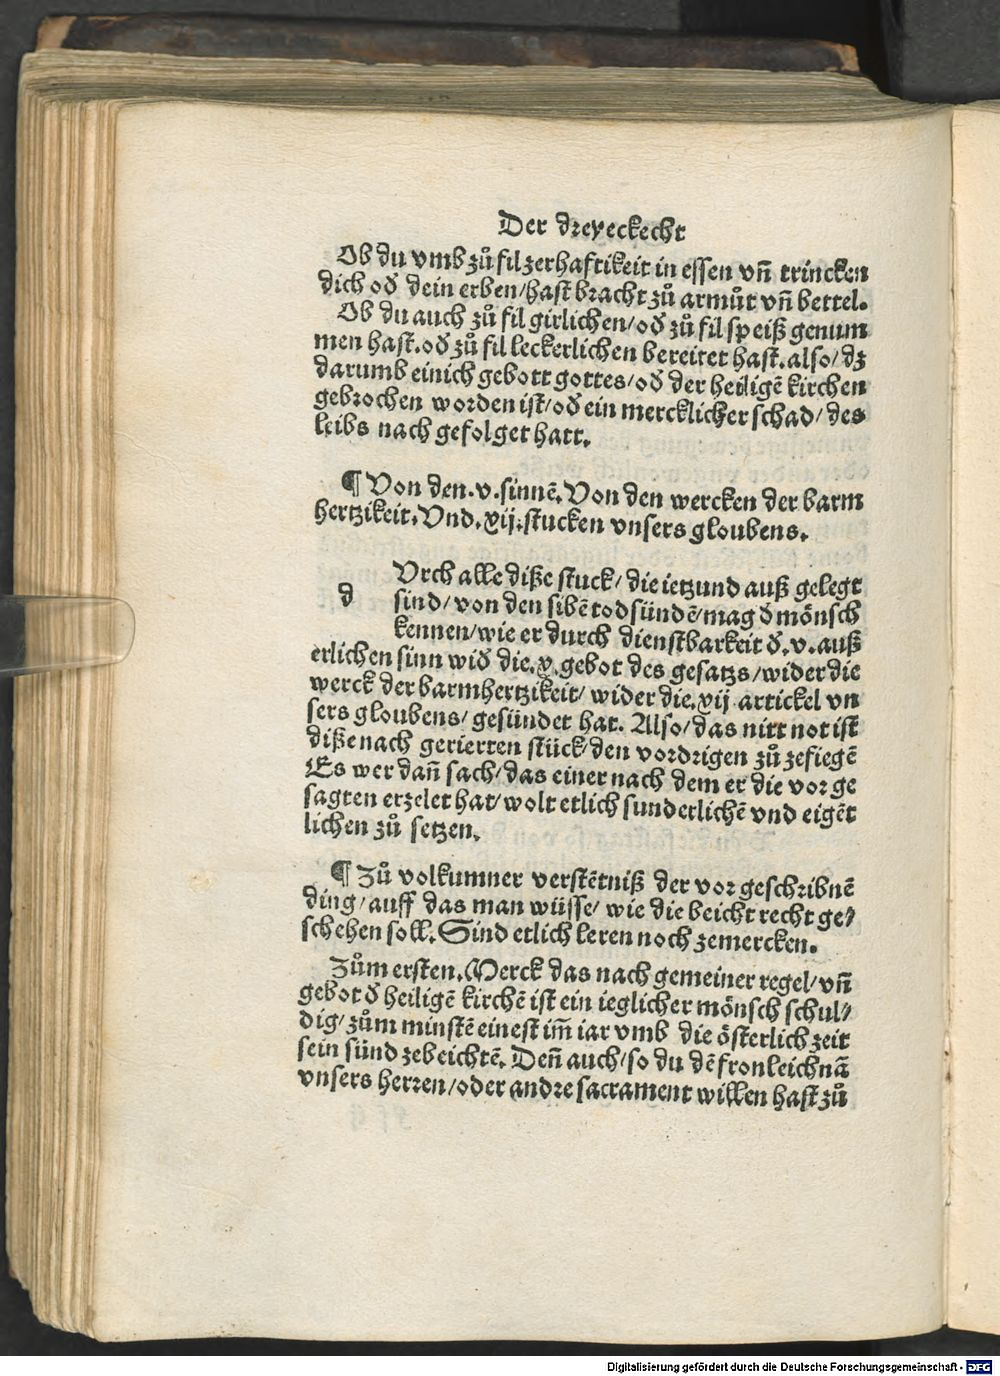 Der dreyeckecht
Ob du vmb zů fil zerhaftikeit in essen vn̄ trincken
dich oď dein erben/hast bracht zů armůt vn̄ bettel.
Ob du auch zů fil girlichen/oď zů fil speiß genum
men hast.oď zů fil leckerlichen bereitet hast.also/dz
darumb einich gebott gottes/oď der heiligē kirchen
gebrochen worden ist/oď ein mercklicher schad/des
leibs nach gefolget hatt.
¶ Von den.v.sinnē.Von den wercken der barm
hertzikeit.Vnd.xij.stucken vnsers gloubens.
d
Vrch alle diße stuck/die ietzund auß gelegt
sind/von den sibē todsündē/mag ď mönsch
kennen/wie er durch dienstbarkeit ď.v.auß
erlichen sinn wiď die.x.gebot des gesatzs/wider die
werck der barmhertzikeit/wider die.xij artickel vn
sers gloubens/gesündet hat. Also/das nitt not ist
diße nach gerierten stück/den vordrigen zů zefiegē
Es wer dan̄ sach/das einer nach dem er die vor ge
sagten erzelet hat/wolt etlich sunderlichē vnd eigēt
lichen zů setzen.
¶ Zů volkumner verstētniß der vor geschribnē
ding/auff das man wüsse/wie die beicht recht ge/
schehen soll.Sind etlich leren noch zemercken.
Zům ersten.Merck das nach gemeiner regel/vn̄
gebot ď heiligē kirchē ist ein ieglicher mönsch schul/
dig/zům minstē einest im̄ iar vmb die österlich zeit
sein sünd zebeichtē. Den̄ auch/so du dē fronleichnā
vnsers herren/oder andre sacrament willen hast zů
Digitalisierung gefördert durch die Deutsche Forschungsgemeinschaft - DFG